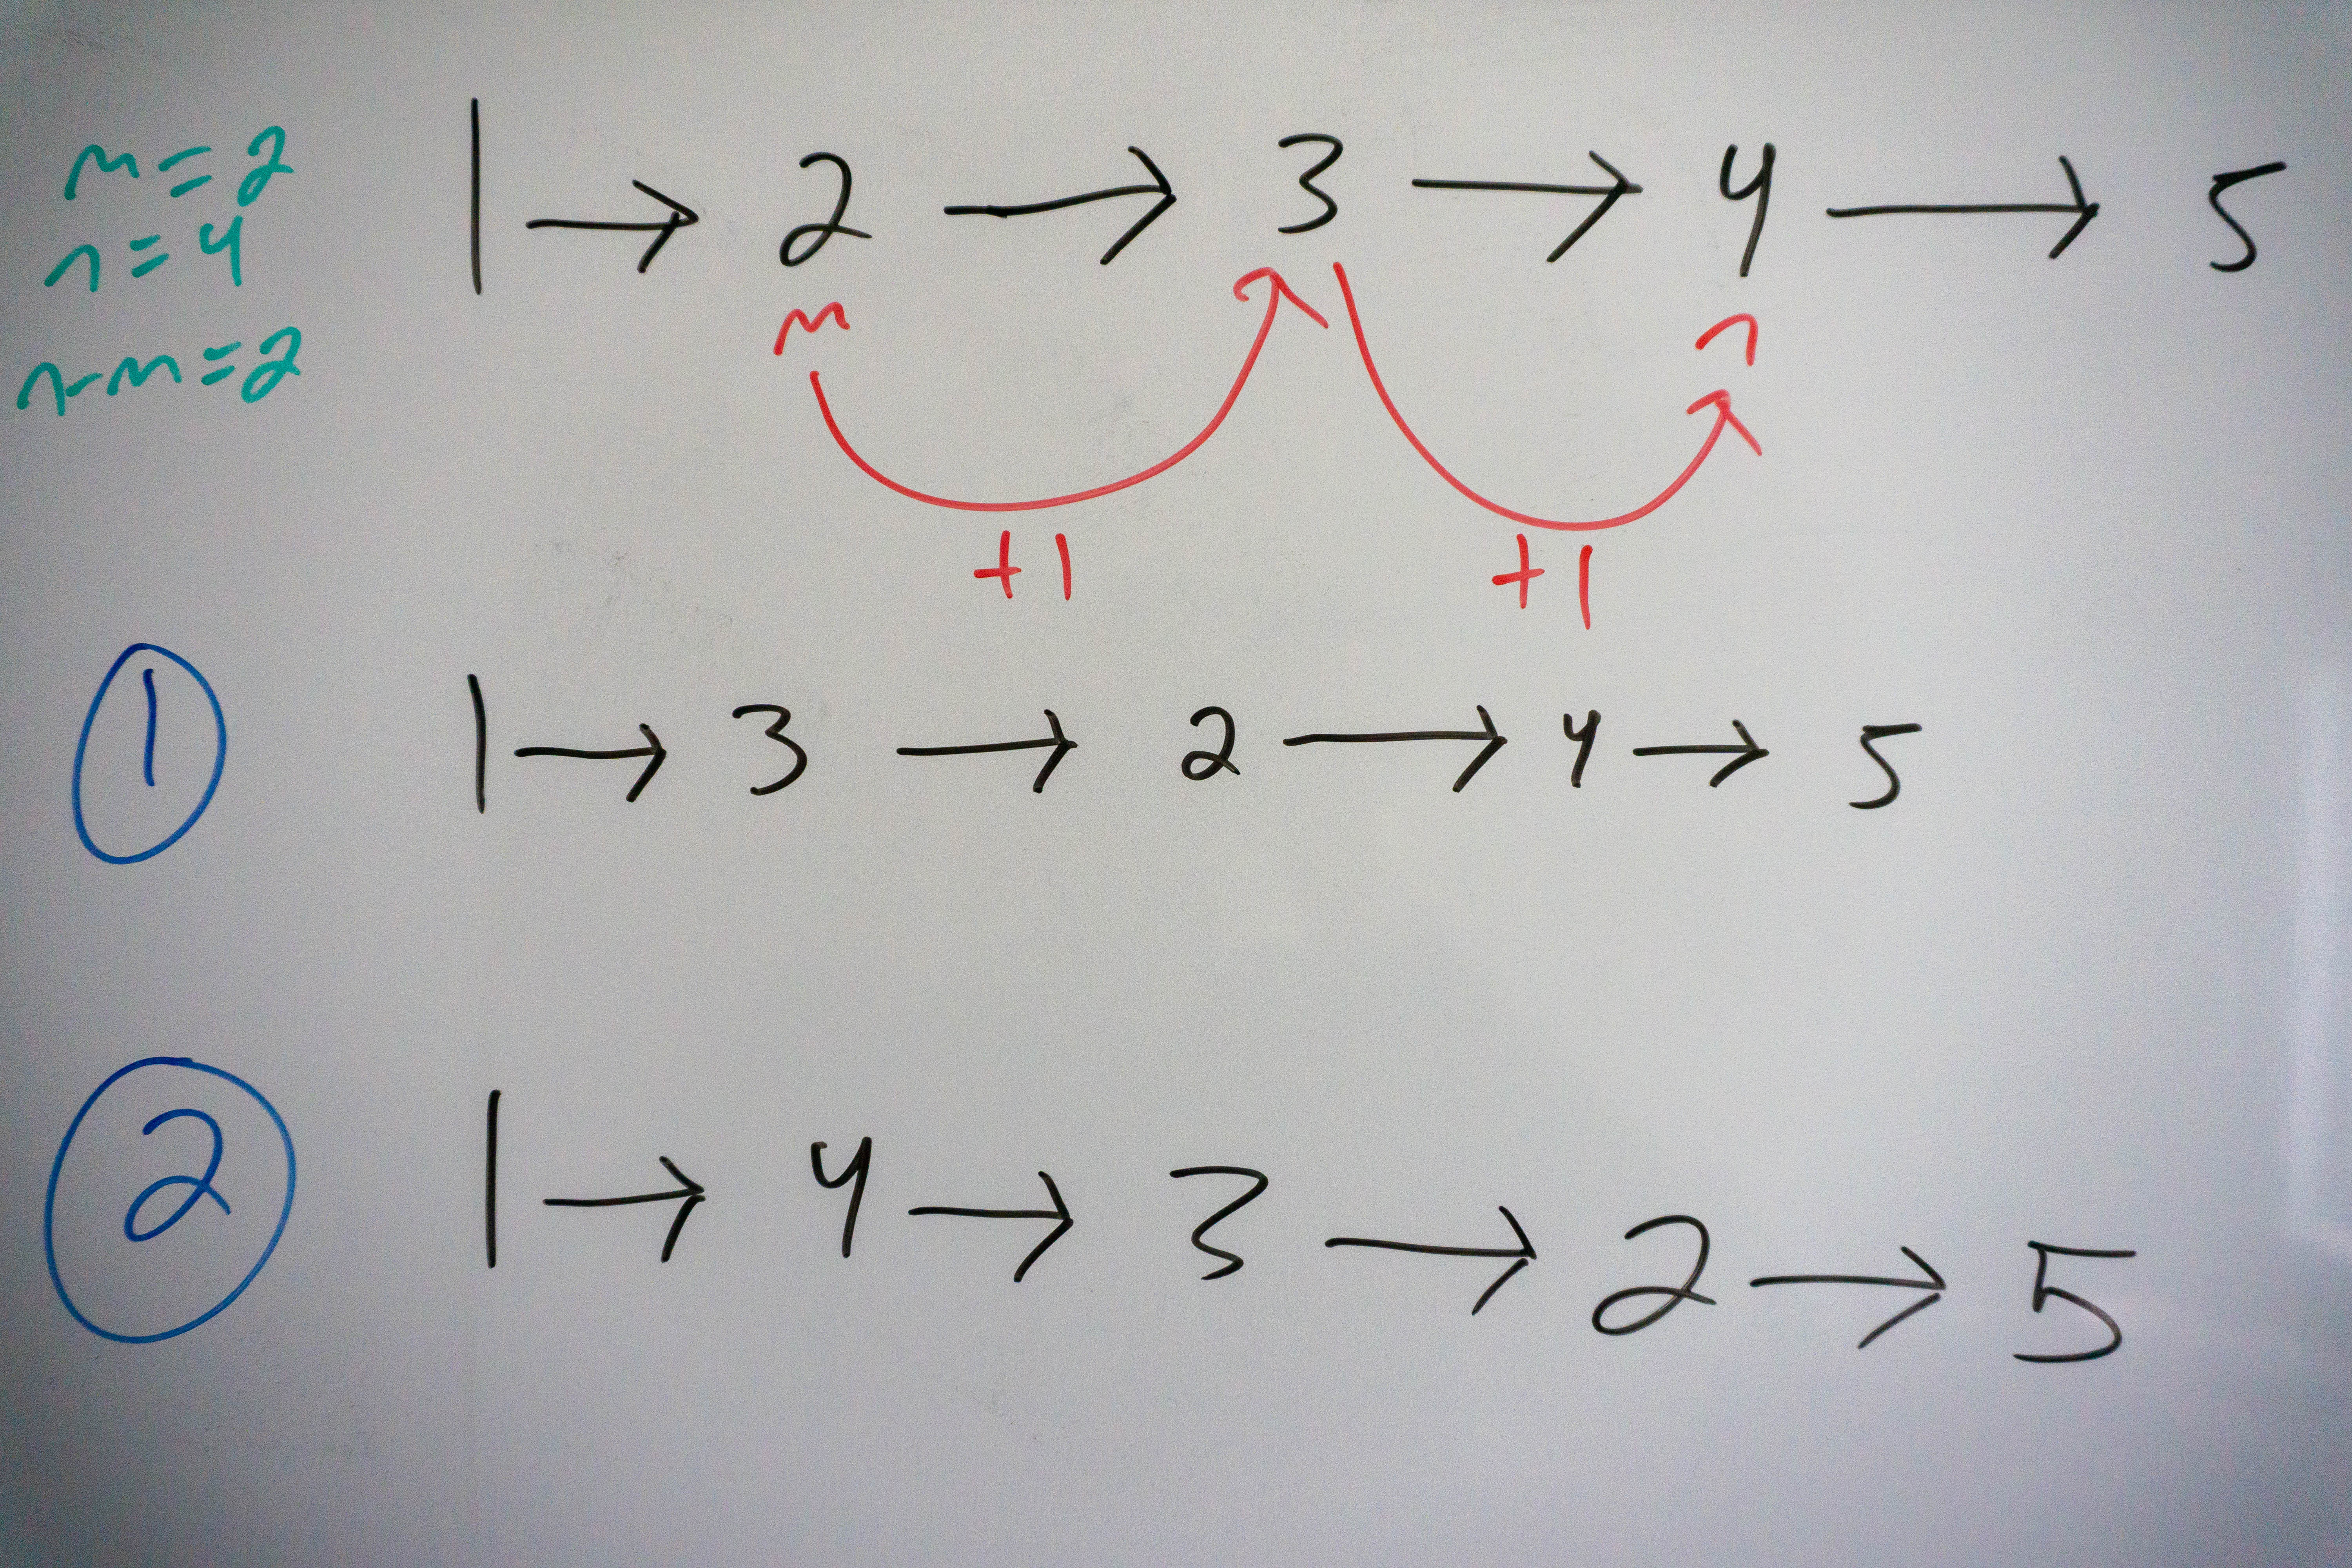 m=2
n=4
n-m=2
1 → 2 → 3 → 4 → 5
m n
+1 +1
1 1 → 3 → 2 → 4 → 5
2 1 → 4 → 3 → 2 → 5